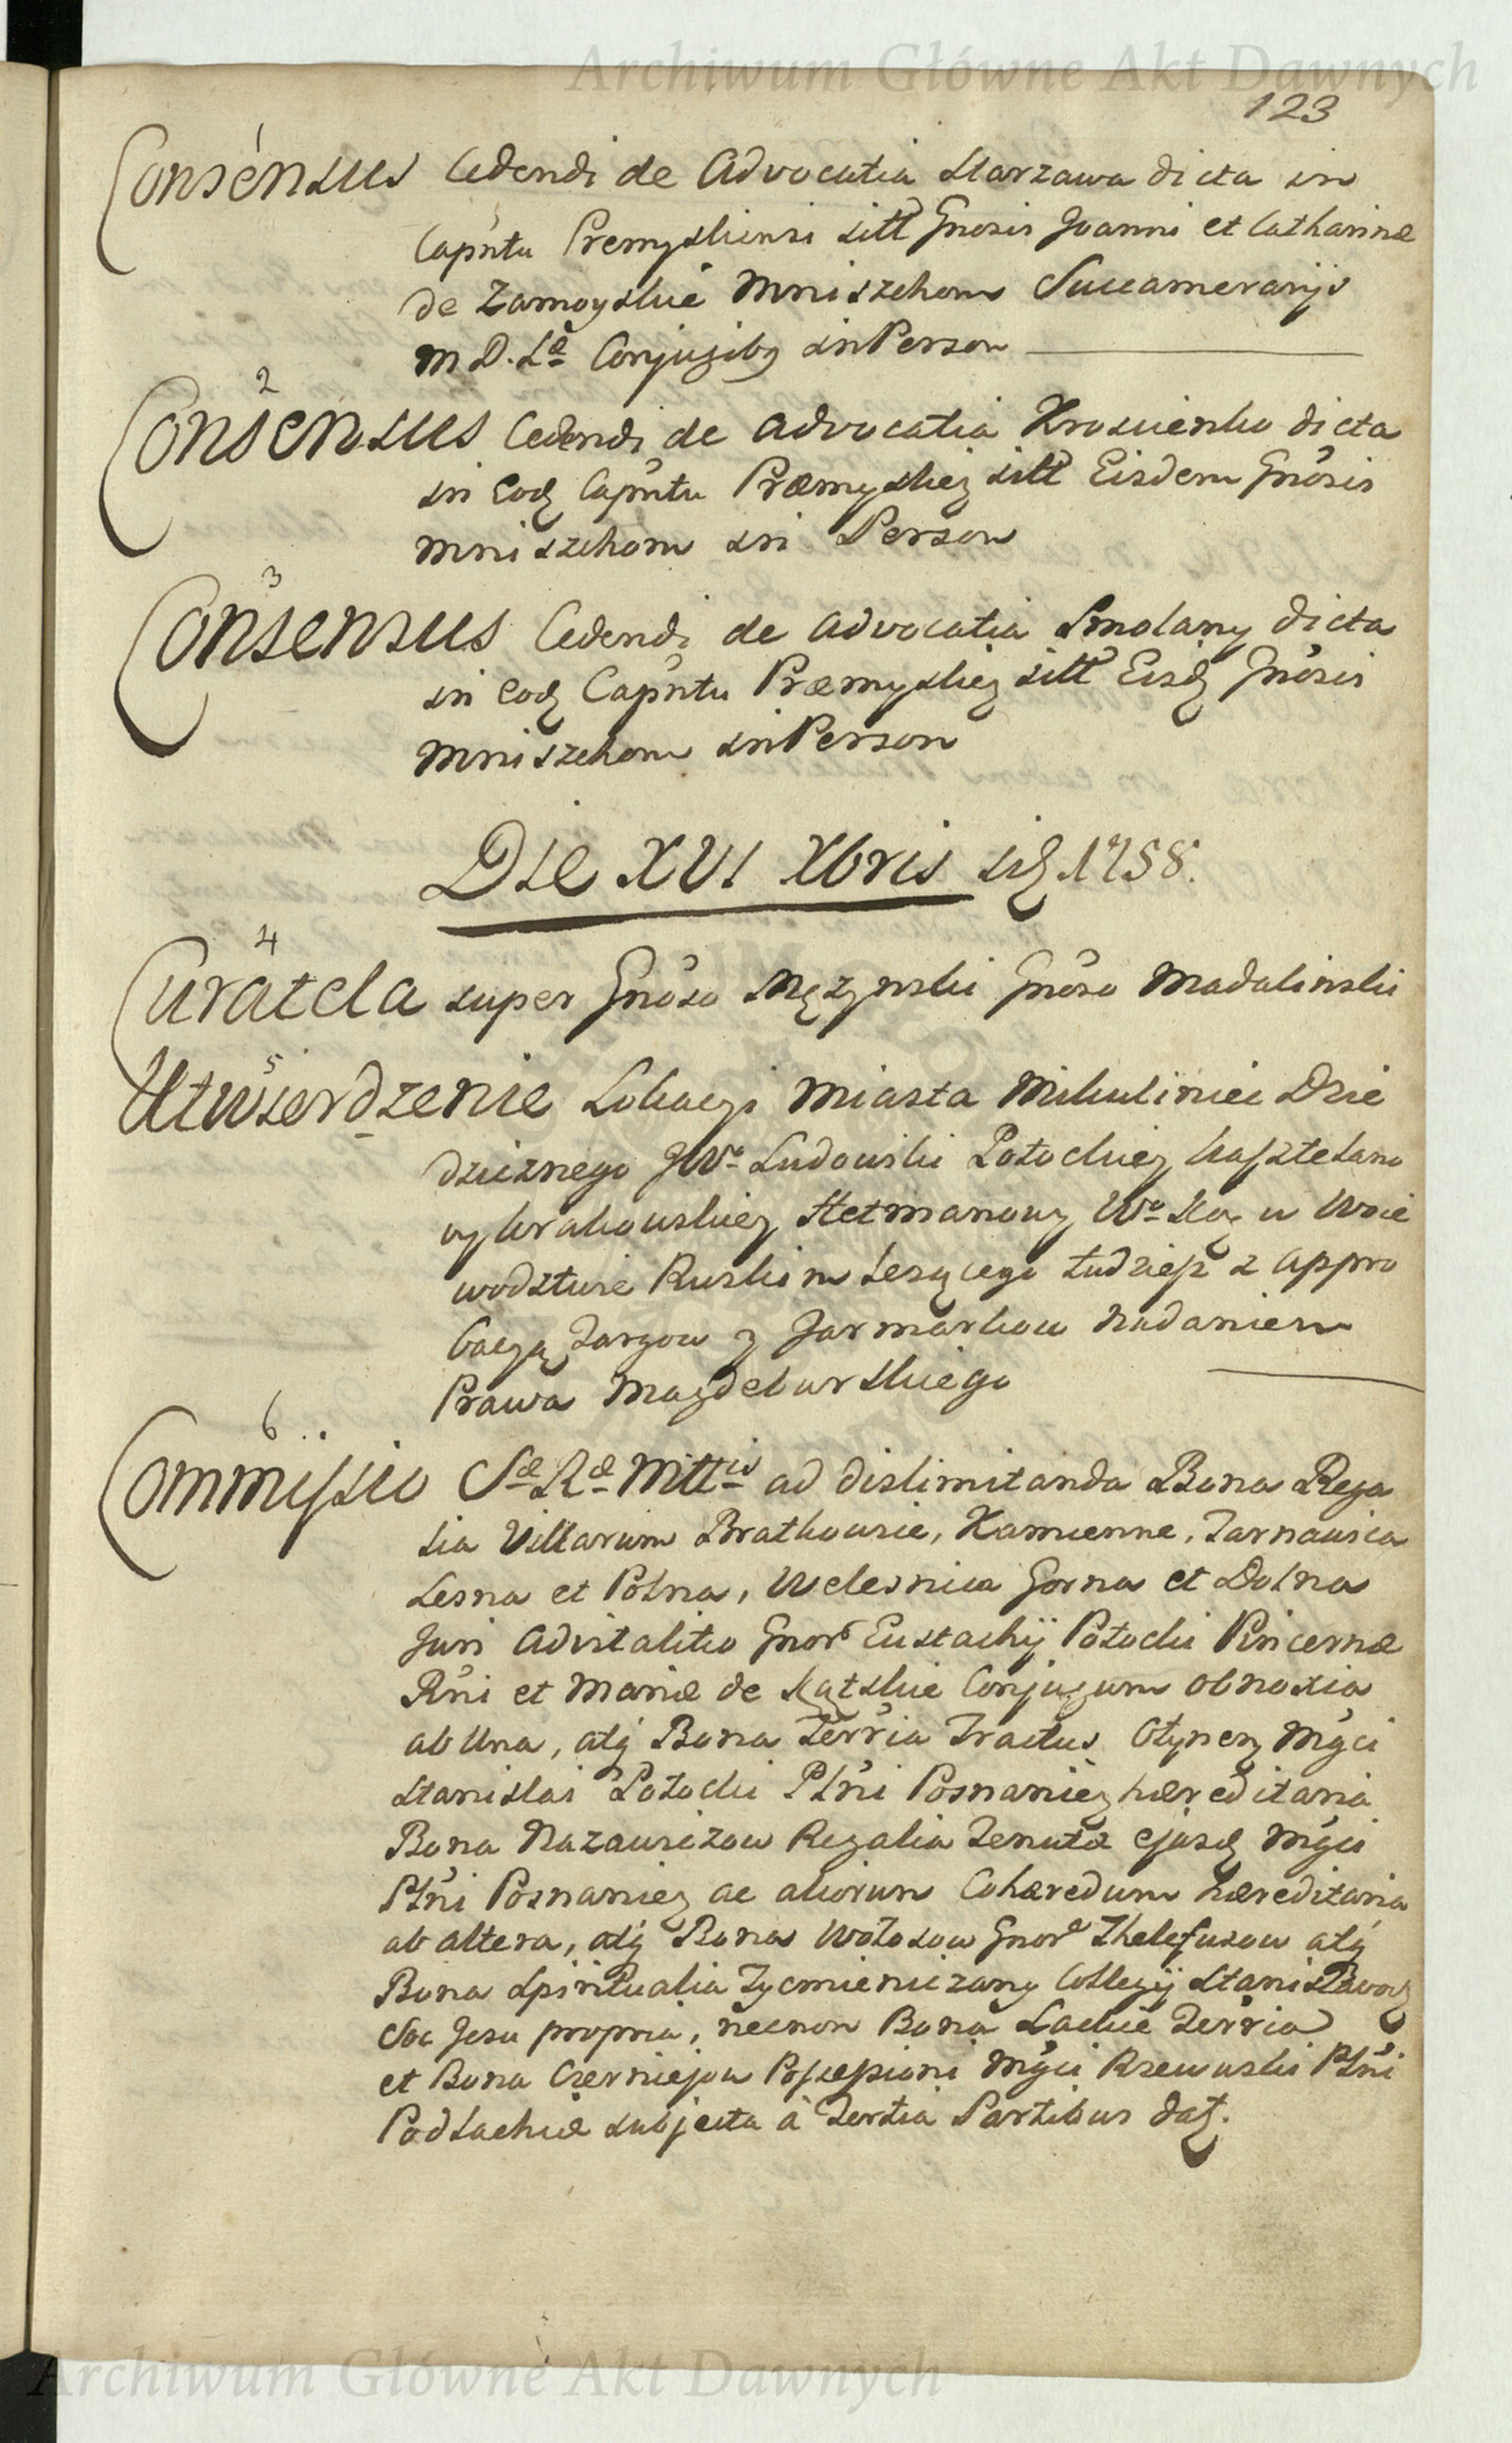 Archiwum Główne Akt Dawnych
123
1
Consensus Cedendi de Advocatia Starzawa dicta in
Capntu Premysliensi sitt Gnosis Joanni et Catharinæ
de Zamoyskie Mniszchom Succamerarijs
M D. Læ Conjugibq in Person
2
Consensus Cedendi de Advocatia Krosienko dicta
in Eod Capntu Præmyslien sitt Eisdem Gnosis
Mniszchom in Person
3
Consensus Cedendi de Advocatia Smolany dicta
in Eod Capntu Præmyslien sitt Eisd Gnosis
Mniszchom in Person
Die XVI Xbris 1758.
4
Curatela super Gnoso Męzynski Gnoso Madalinski
5
Utwierdzenie Lokacyi Miasta Mikuliniec Dzie
dzicznego JWo Ludowiki Potockiey kasztelano
wy krakowskiey Hetmanowy Wo Kor w Woie
wodztwie Ruskim Lezącego tudziesz z appro
bacyą Targow y Jarmarkow nadaniem
Prawa Magdeburskiego
6
Commissio Sæ Ræ Mttis ad dislimitanda Bona Rega
lia Villarum Bratkowie, Kamienne, Tarnawica
Lesna et Polna, Welesnica Gorna et Dolna
Juri Advitalitio Gnor Eustachÿ Potocki Pincernæ
Rni et Mariæ de Kątskie Conjugum obnoxia
ab Una, atq Bona Terria Tractus Otyney Mgci
Stanislai Potocki Plni Posnanien hæreditaria
Bona Nazawizow Regalia Tenutæ ejusd Mgci
Plni Posnanien ac aliorum Cohæredum hæreditaria
ab altera, atq Bona Wołosow Gnor Thelefusow atq
Bona Spiritualia Tycmieniczany Collegÿ Stanisłavov
Soc Jesu propria, necnon Bona Lackie Terria
et Bona Czerniejow Possessioni Mgci Rzewuski Plni
Podlachiæ subjecta à Tertia Partibus dat.
Archiwum Główne Akt Dawnych